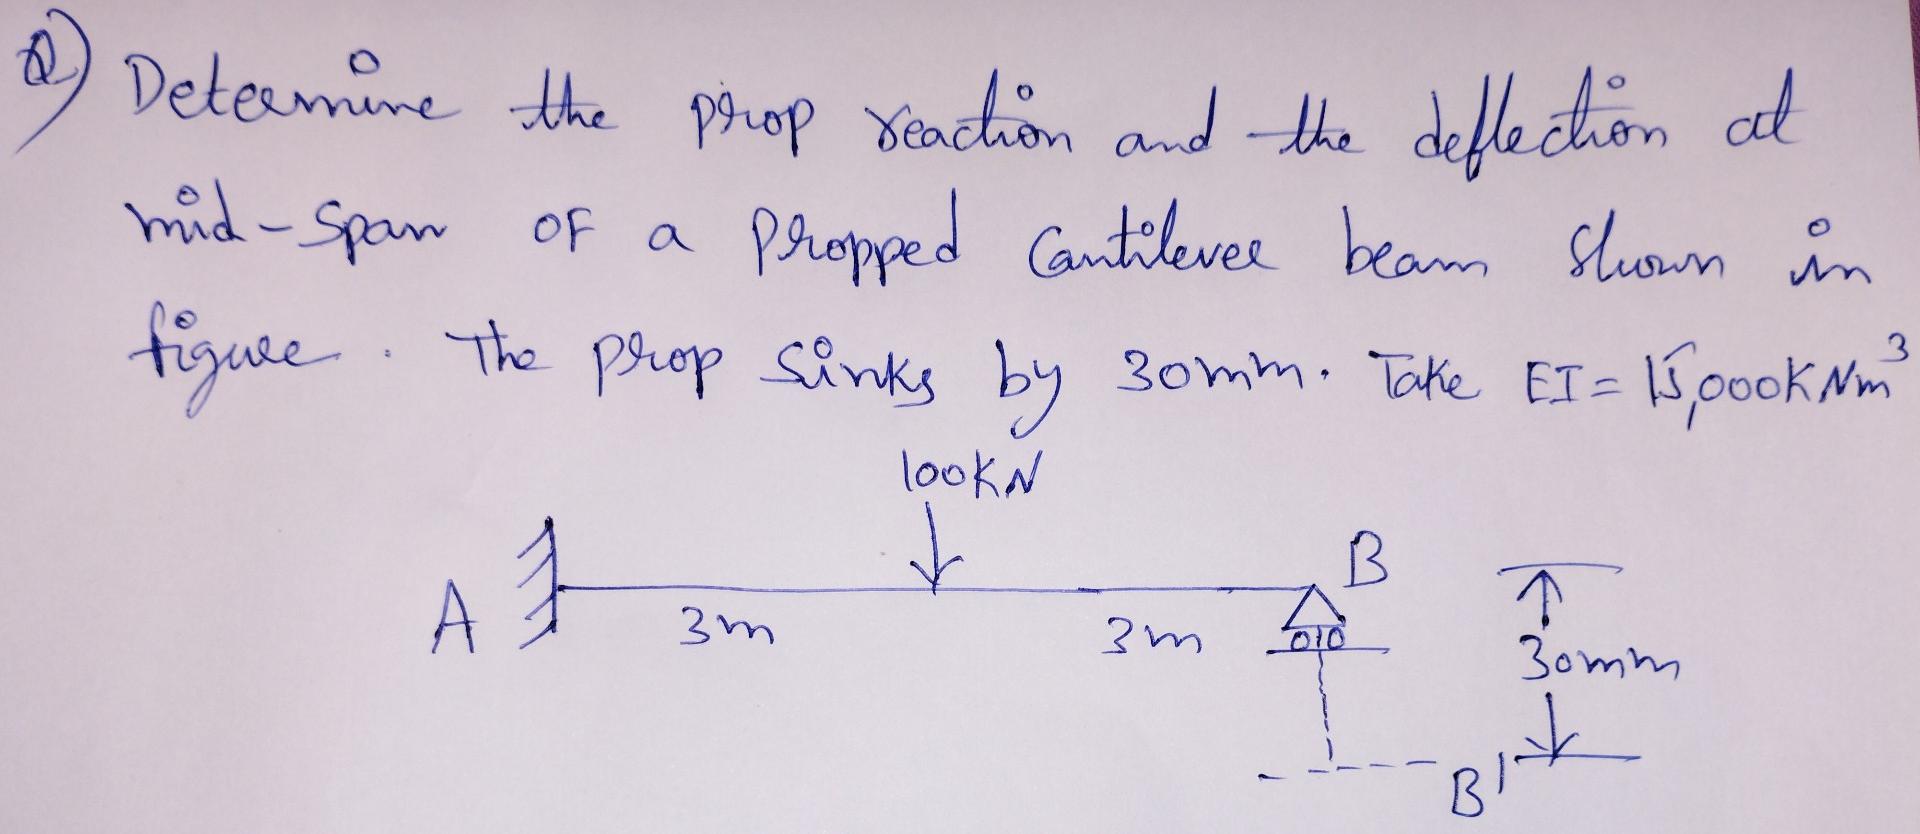 Q) Determine the prop reaction and the deflection at
mid-span of a propped Cantilever beam shown in
figure. The prop sinks by 30mm. Take EI = 15,000KNm³
100KN
A
B
3m
3m
30mm
B'